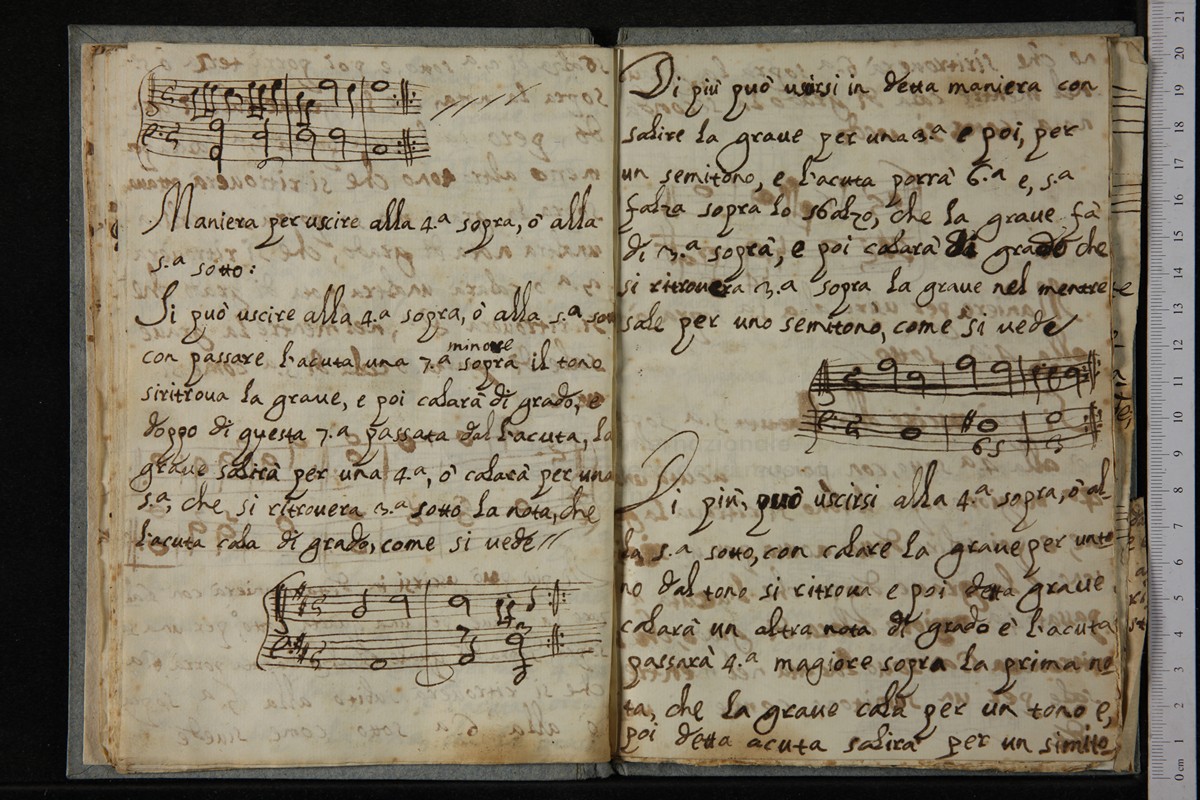 Maniera per uscire alla 4.a sopra, ò alla
5.a sotto:
Si può uscire alla 4.a sopra, ò alla 5.a sot
con passare l'acuta una 7.a minore sopra il tono
si ritroua la graue, e poi calarà di grado, e
doppo di questa 7.a passata dal l'acuta, la
graue salirà per una 4.a, ò calarà per una
5.a, che si ritrouera 3.a sotto la nota, che
l'acuta cala di grado, come si uede //
7
Di più può uscirsi in detta maniera con
salire la graue per una 3.a e poi, per
un semitono, e l'acuta porrà 6.a e, 5.a
falza sopra lo sbalzo, che la graue fà
di 3.a soprà, e poi calarà di grado che
si ritrouera 3.a sopra la graue nel mentre
sale per uno semitono, come si uede
65
Di più, può uscirsi alla 4.a sopra, ò al
la 5.a sotto, con calare la graue per unto
no dal tono si ritroua e poi detta graue
calarà un altra nota di grado è l'acuta
passarà 4.a magiore sopra la prima no
ta, che la graue cala per un tono e,
poi detta acuta salirà per un simito